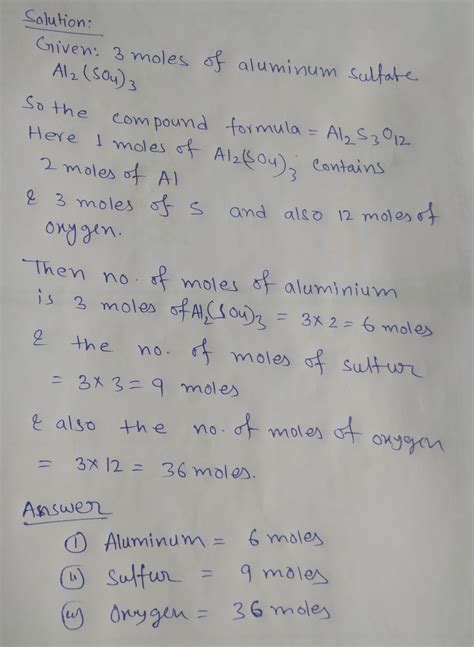 Solution:
Given: 3 moles of aluminum sulfate
Al2(SO4)3
So the compound formula = Al2S3O12
Here 1 moles of Al2(SO4)3 contains
2 moles of Al
& 3 moles of S and also 12 moles of
oxygen.
Then no. of moles of aluminium
is 3 moles of Al2(SO4)3 = 3×2 = 6 moles
& the no. of moles of sulfur
= 3×3 = 9 moles
& also the no. of moles of oxygen
= 3×12 = 36 moles.
Answer
(i) Aluminum = 6 moles
(ii) Sulfur = 9 moles
(iii) Oxygen = 36 moles